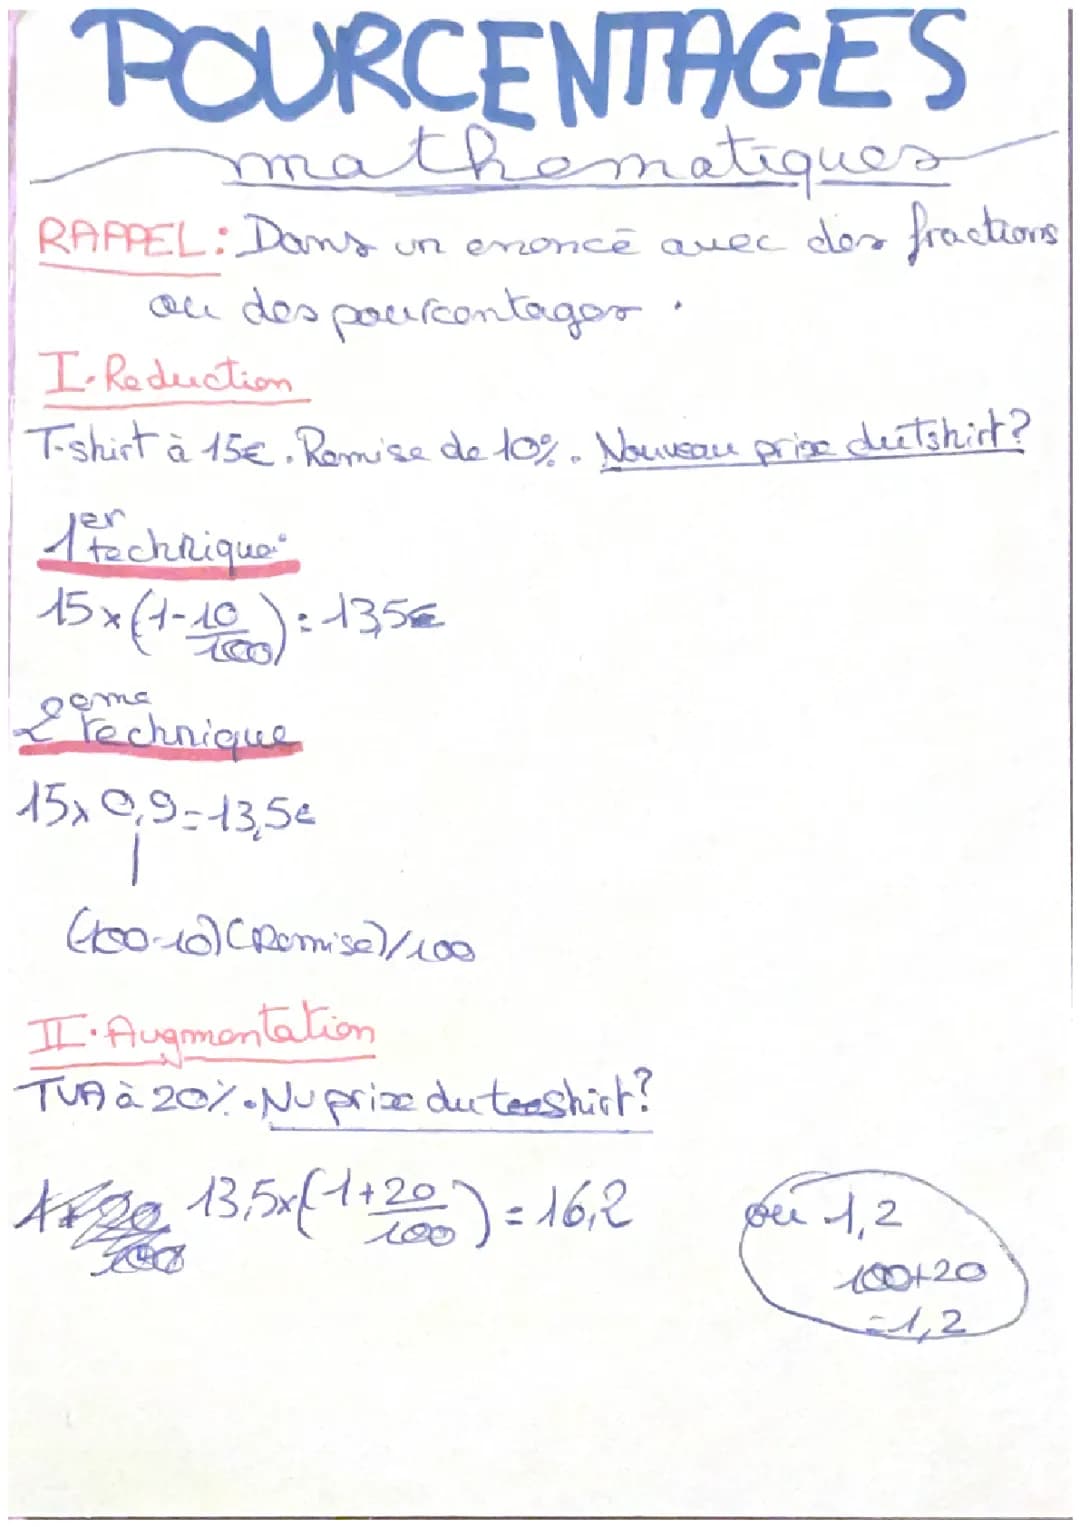 POURCENTAGES
mathematiques
RAPPEL: Dans un enoncé avec des fractions
ou des pourcentages.
I. Reduction
T-shirt à 15€. Remise de 10%. Nouveau prix du tshirt?
1er technique:
15x(1-10/100)=13,5€
2eme technique
15x0,9=13,5€
(100-10)(Remise)/100
II. Augmentation
TVA à 20%. Nu prix du teeshirt?
1+20/100 13,5x(1+20/100)=16,2
ou 1,2
100+20
=1,2